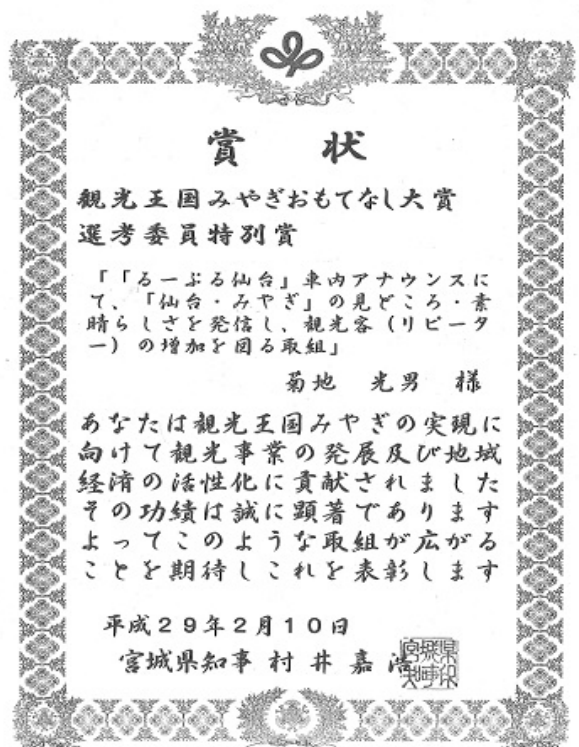 賞状
観光王国みやぎおもてなし大賞
選考委員特別賞
「「るーぷる仙台」車内アナウンスに
て、「仙台・みやぎ」の見どころ・素
晴らしさを発信し、観光客（リピータ
ー）の増加を図る取組」
菊地 光男 様
あなたは観光王国みやぎの実現に
向けて観光事業の発展及び地域
経済の活性化に貢献されました
その功績は誠に顕著であります
よってこのような取組が広がる
ことを期待しこれを表彰します
平成29年2月10日
宮城県知事 村井嘉浩